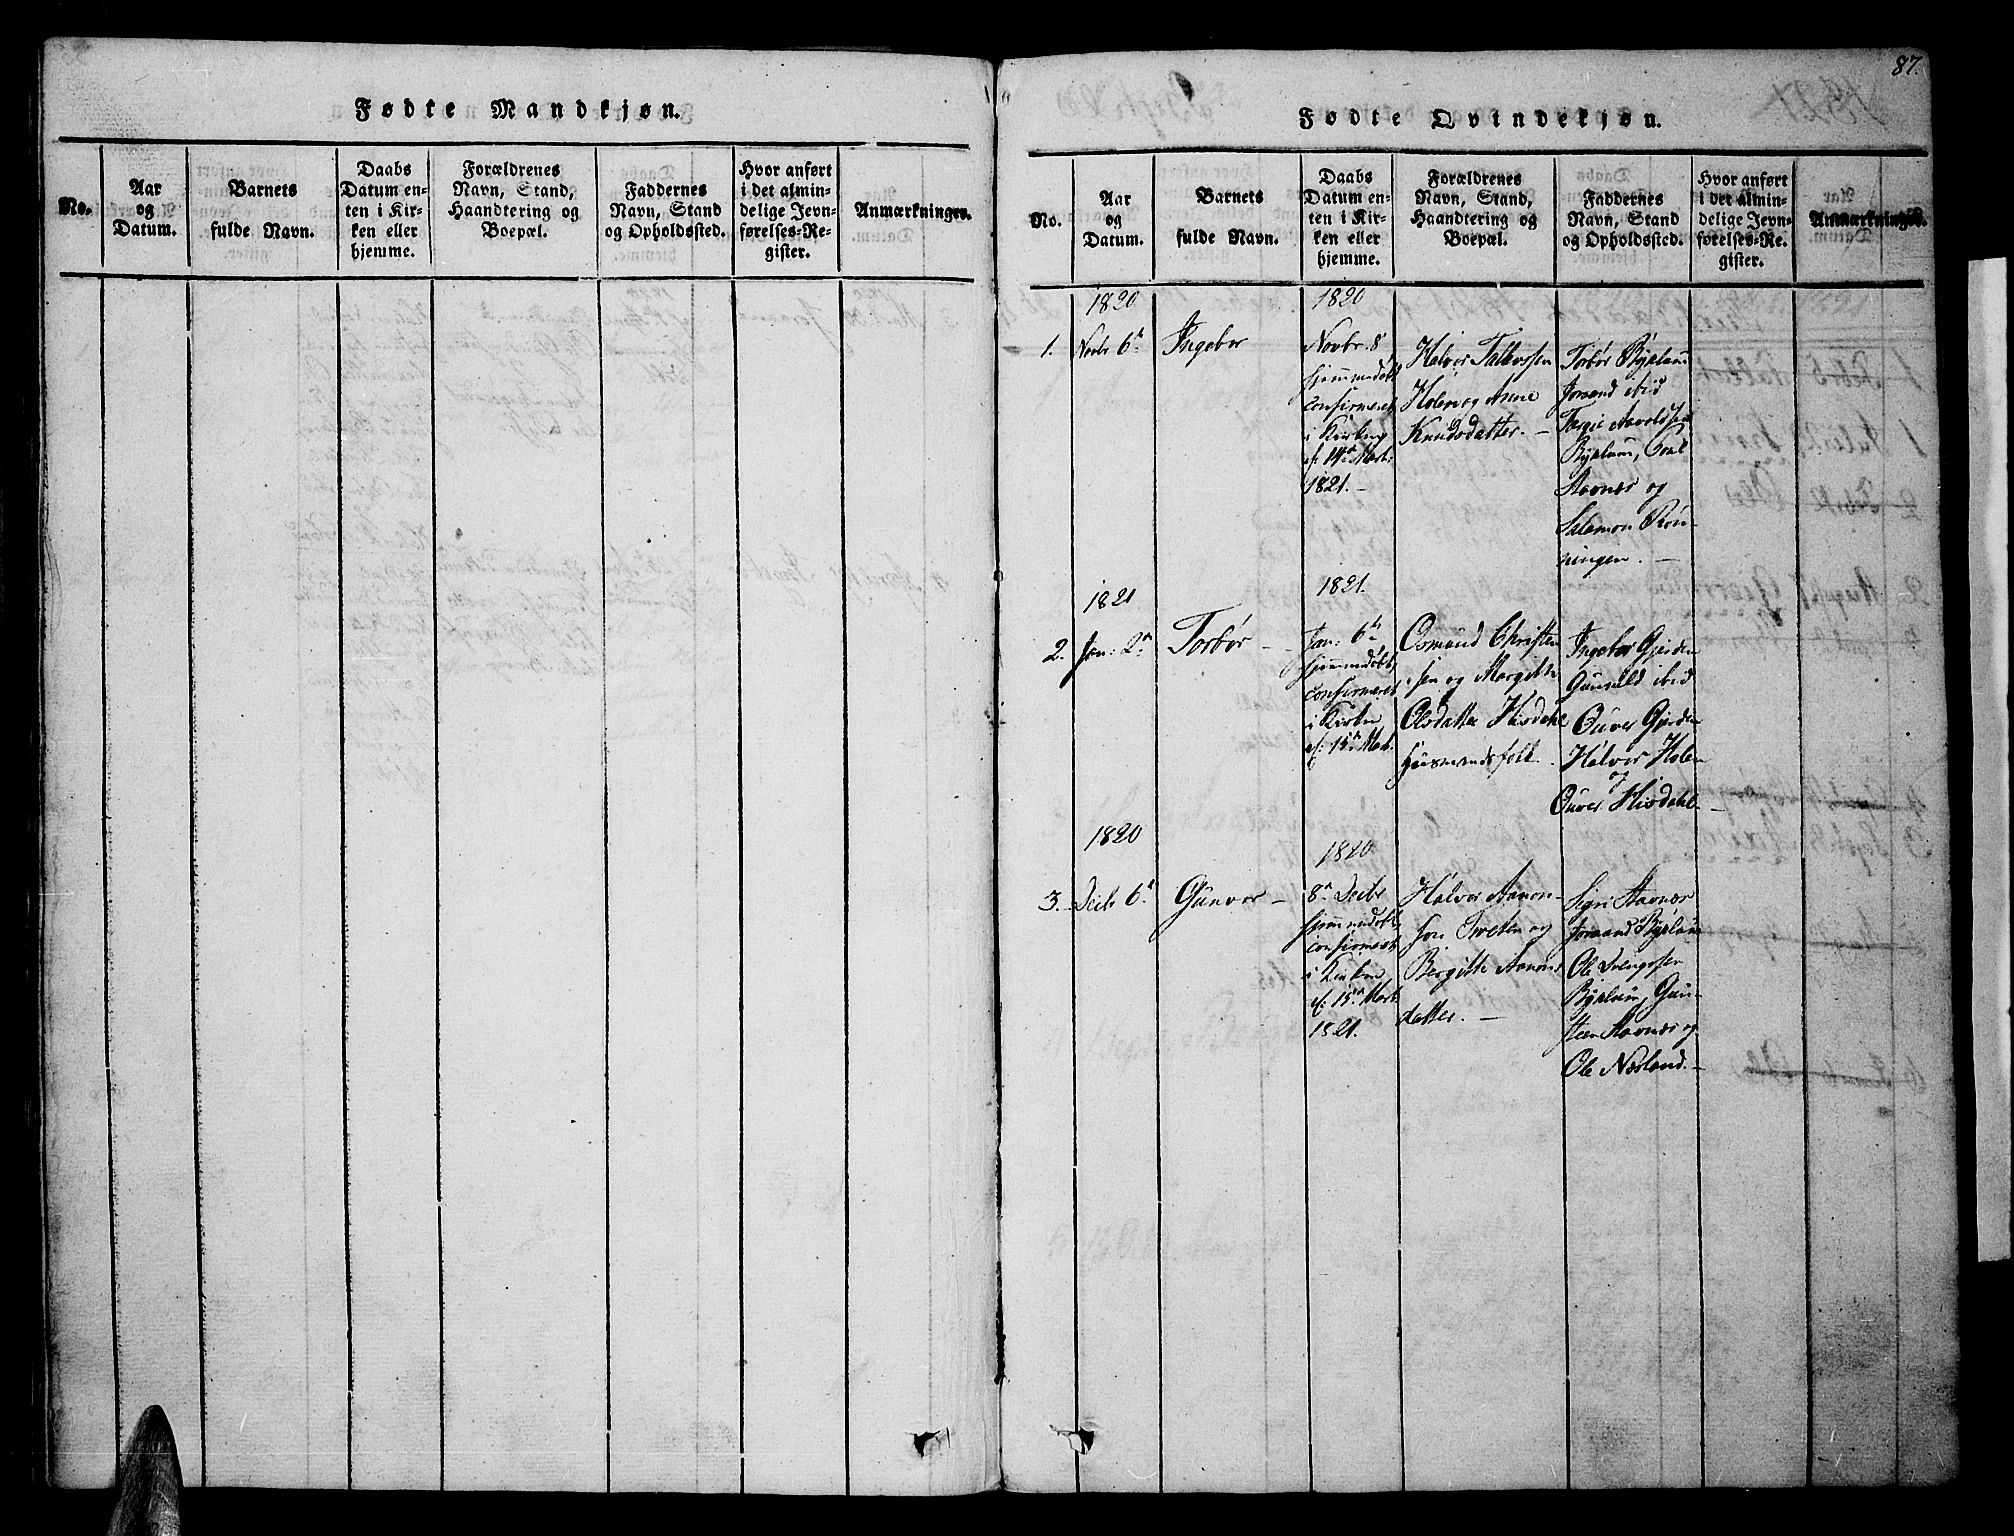 87.
Fødte Mandkjøn.
No.
Aar
og
Datum.
Barnets
fulde Navn.
Daabs
Datum en-
ten i Kir-
ken eller
hjemme.
Forældrenes
Navn, Stand,
Haandtering og
Boepæl.
Faddernes
Navn, Stand
og Opholdssted.
Hvor anført
i det almin-
delige Jevn-
førelses-Re-
gister.
Anmærkninger.
Fødte Qvindekjøn.
No.
Aar
og
Datum.
Barnets
fulde Navn.
Daabs
Datum en-
ten i Kir-
ken eller
hjemme.
Forældrenes
Navn, Stand,
Haandtering og
Boepæl.
Faddernes
Navn, Stand
og Opholdssted.
Hvor anført
i det almin-
delige Jevn-
førelses-Re-
gister.
Anmærkninger.
1.
1820
Novbr 6
Ingebor
1820
Novbr. 8
hjemmedøbt
confirmeret
i Kirken
14 Mart.
1821. –
Halvor Tallevssen
Holen og Anne
Knudsdatter. –
Torbør Byklum
Joraand ibid
Targie Aavoldsen
Byklum,
Stavnes og
Salamon Røn-
ningen. –
2.
1821
Jan: 2
Torbør –
1821.
Jan: 6
hjemmedøbt,
confirmeret
i Kirken
15 Mart.
Osmund Christen
sen og Margitte
Olsdatter Hisdahl
Huusmandsfolk.
Ingebor Gjerden
Gunuld ibid
Ouver Gjerden
Halvor Holen
og
Ouver Hisdahl –
3.
1820
Decb 6
Gunvor –
1820
8 Decbr
hjemmedøbt
confirmert
i Kirken
15 Mart.
1821.
Halvor Aanon-
sen Tveten og
Bergitte Aanons
datter. –
Sigri Stavnes
Joraand Byklum
Ole Svengssen
Byklum, Gun-
steen Stavnes og
Ole Næsland. –